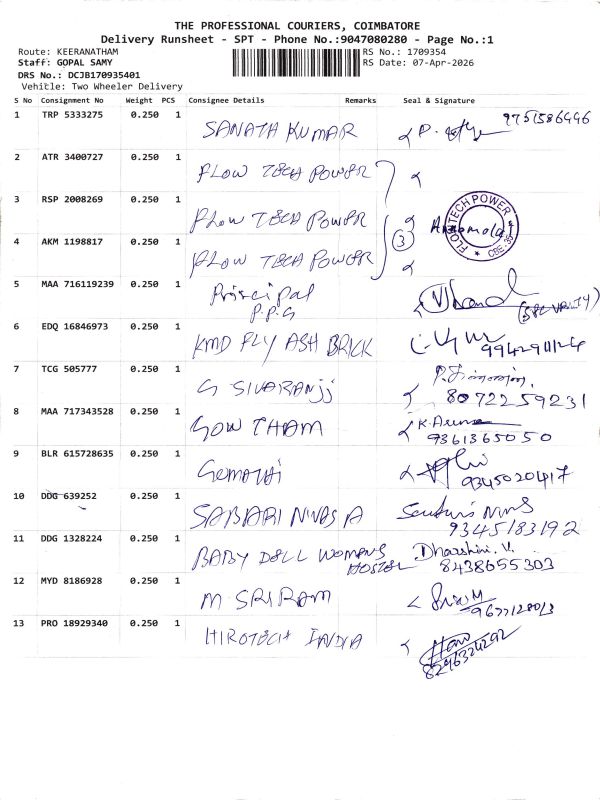 THE PROFESSIONAL COURIERS, COIMBATORE
Delivery Runsheet - SPT - Phone No.:9047080280 - Page No.:1
Route: KEERANATHAM RS No.: 1709354
Staff: GOPAL SAMY RS Date: 07-Apr-2026
DRS No.: DCJB170935401
Vehicle: Two Wheeler Delivery
S No Consignment No Weight PCS Consignee Details Remarks Seal & Signature
1 TRP 5333275 0.250 1 SANATH KUMAR 9751586446
2 ATR 3400727 0.250 1 FLOW TECH POWER
3 RSP 2008269 0.250 1 FLOW TECH POWER
3
FLOWTECH POWER CBE-35
4 AKM 1198817 0.250 1 FLOW TECH POWER
5 MAA 716119239 0.250 1 Principal
P.P.G (SECURITY)
6 EDQ 16846973 0.250 1 KMD FLY ASH BRICK
7 TCG 505777 0.250 1 G SIVARANJJ
8072259231
8 MAA 717343528 0.250 1 GOWTHAM K.Aruna
9361365050
9 BLR 615728635 0.250 1 GOMATHI
9345020417
10 DDG 639252 0.250 1 SABARI NIVAS A
9345183192
11 DDG 1328224 0.250 1 BABY DOLL WOMENS HOSTEL Dharshini.V.
8438655303
12 MYD 8186928 0.250 1 M SRIRAM
13 PRO 18929340 0.250 1 HIROTECH INDIA
8296324292